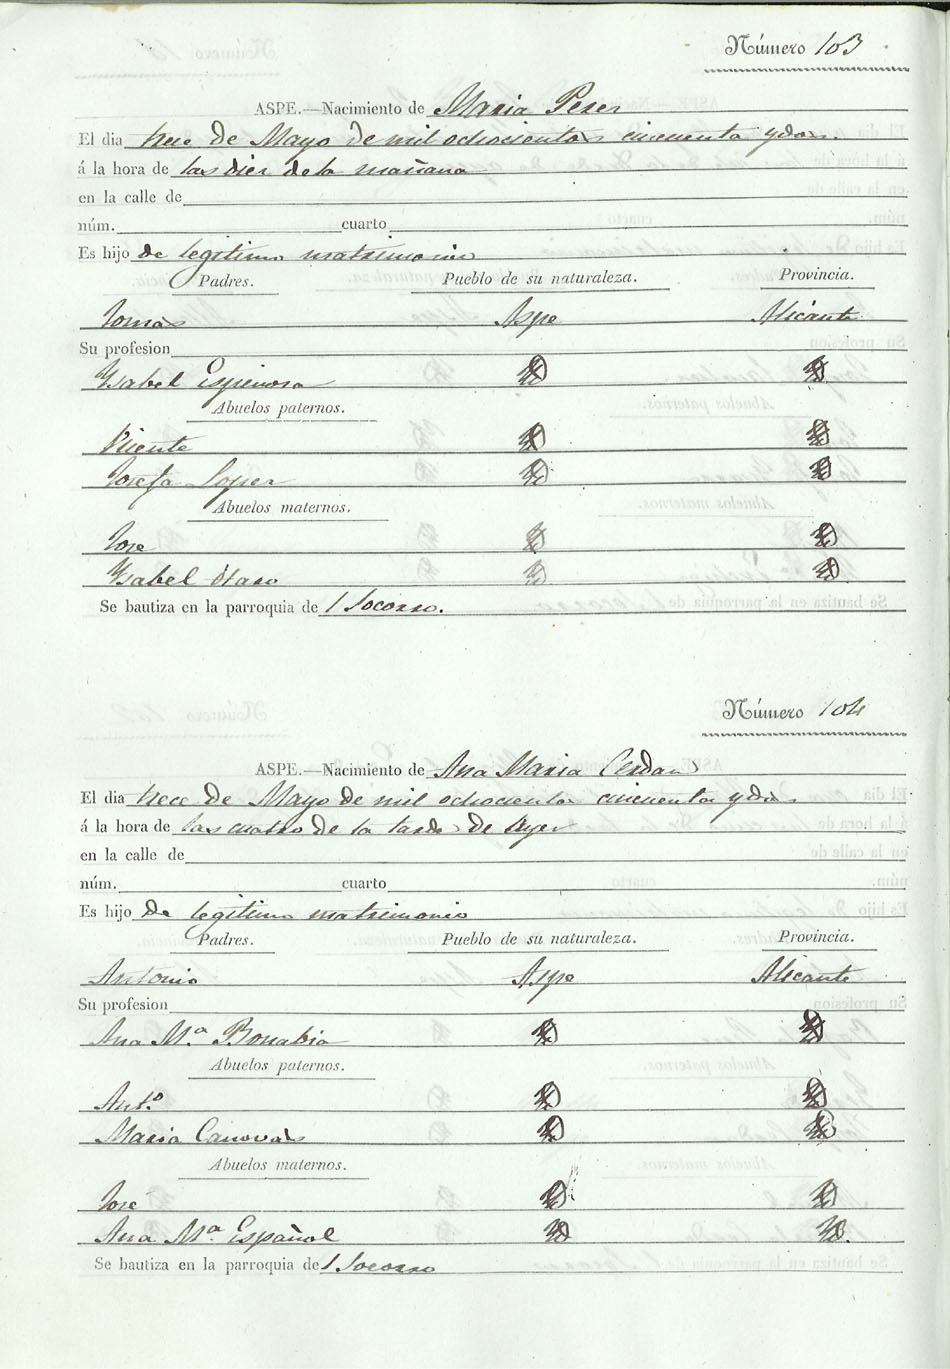 Número 103
ASPE.—Nacimiento de Maria Perez
El dia trece de Mayo de mil ochocientos cincuenta y dos.
á la hora de las diez de la mañana
en la calle de
núm. cuarto
Es hijo de legitimo matrimonio
Padres. Pueblo de su naturaleza. Provincia.
Tomas Aspe Alicante
Su profesion
Ysabel Espinosa
Abuelos paternos.
Vicente
Josefa Lopez
Abuelos maternos.
Jose
Ysabel
Se bautiza en la parroquia de l Socorro.
Número 104
ASPE.—Nacimiento de Ana Maria Cerdan
El dia trece de Mayo de mil ochocientos cincuenta y dos
á la hora de las cuatro de la tarde de ayer
en la calle de
núm. cuarto
Es hijo de legitimo matrimonio
Padres. Pueblo de su naturaleza. Provincia.
Antonio Aspe Alicante
Su profesion
Ana Mª Bonabia
Abuelos paternos.
Antº
Maria Canovas
Abuelos maternos.
José
Ana Mª Español
Se bautiza en la parroquia de l Socorro